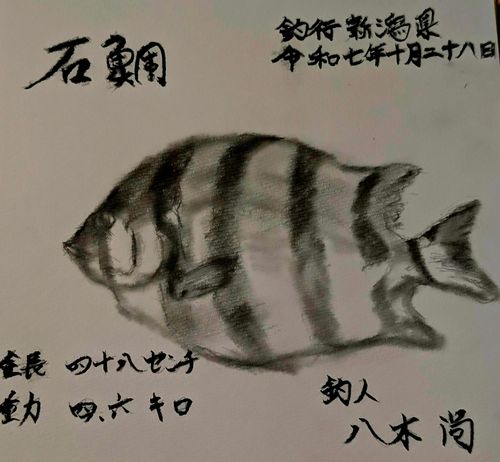 石鯛
釣行 新潟県
令和七年十月二十八日
全長 四十八センチ
重力 四.六キロ
釣人
八木 尚